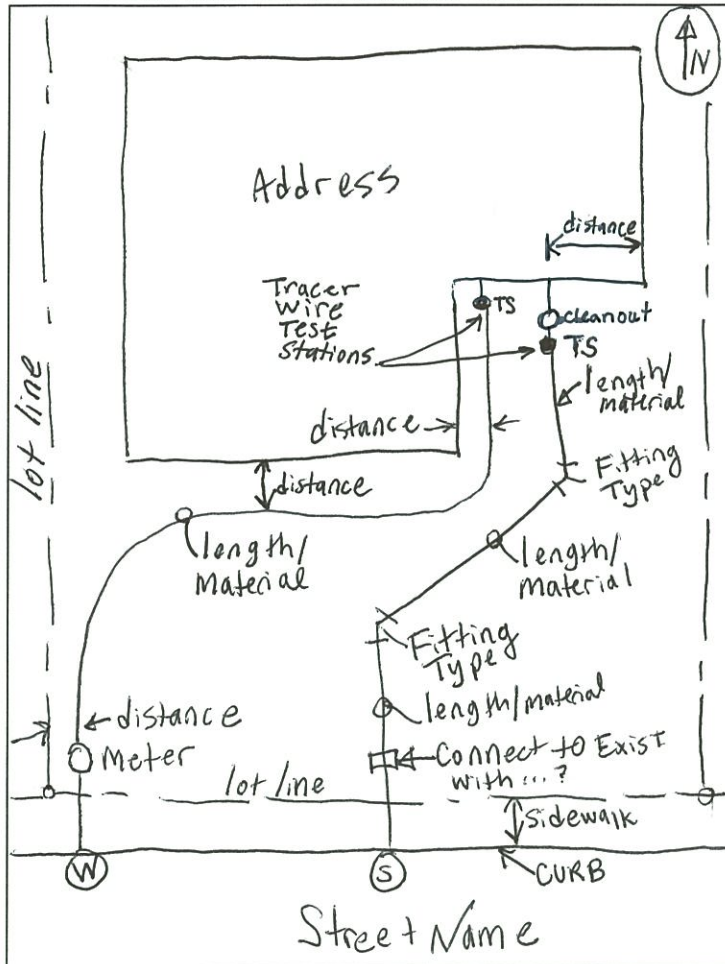 N
Address
distance
Tracer
Wire
Test
Stations
TS
cleanout
TS
length/
material
lot line
distance
distance
Fitting
Type
length/
material
length/
material
Fitting
Type
distance
length/material
Meter
Connect to Exist
with ...?
lot line
Sidewalk
W
S
CURB
Street Name